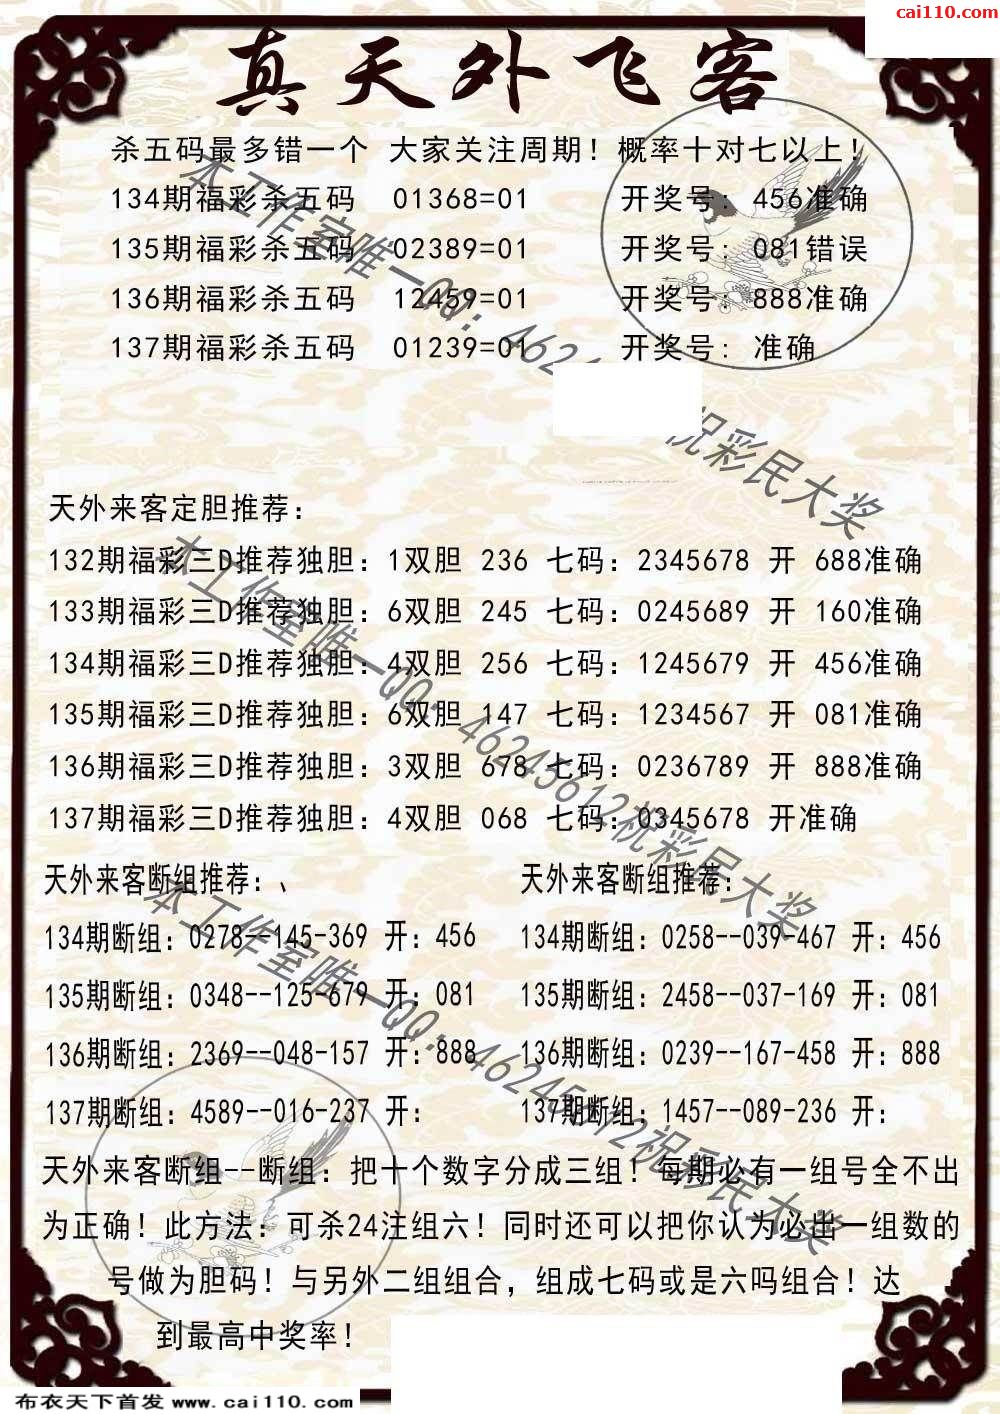 cai110.com
真天外飞客
杀五码最多错一个 大家关注周期！概率十对七以上！
134期福彩杀五码 01368=01 开奖号：456准确
135期福彩杀五码 02389=01 开奖号：081错误
136期福彩杀五码 12459=01 开奖号：888准确
137期福彩杀五码 01239=01 开奖号：准确
本工作室唯一QQ：462 祝彩民大奖
天外来客定胆推荐：
132期福彩三D推荐独胆：1双胆 236 七码：2345678 开 688准确
133期福彩三D推荐独胆：6双胆 245 七码：0245689 开 160准确
134期福彩三D推荐独胆：4双胆 256 七码：1245679 开 456准确
135期福彩三D推荐独胆：6双胆 147 七码：1234567 开 081准确
136期福彩三D推荐独胆：3双胆 678 七码：0236789 开 888准确
137期福彩三D推荐独胆：4双胆 068 七码：0345678 开准确
本工作室唯一QQ：46245612祝彩民大奖
天外来客断组推荐：、 天外来客断组推荐：
134期断组：0278--145-369 开：456 134期断组：0258--039-467 开：456
135期断组：0348--125-679 开：081 135期断组：2458--037-169 开：081
136期断组：2369--048-157 开：888 136期断组：0239--167-458 开：888
137期断组：4589--016-237 开： 137期断组：1457--089-236 开：
本工作室唯一QQ：46245612祝彩民大奖
天外来客断组--断组：把十个数字分成三组！每期必有一组号全不出
为正确！此方法：可杀24注组六！同时还可以把你认为必出一组数的
号做为胆码！与另外二组组合，组成七码或是六吗组合！达
到最高中奖率！
布衣天下首发 www.cai110.com